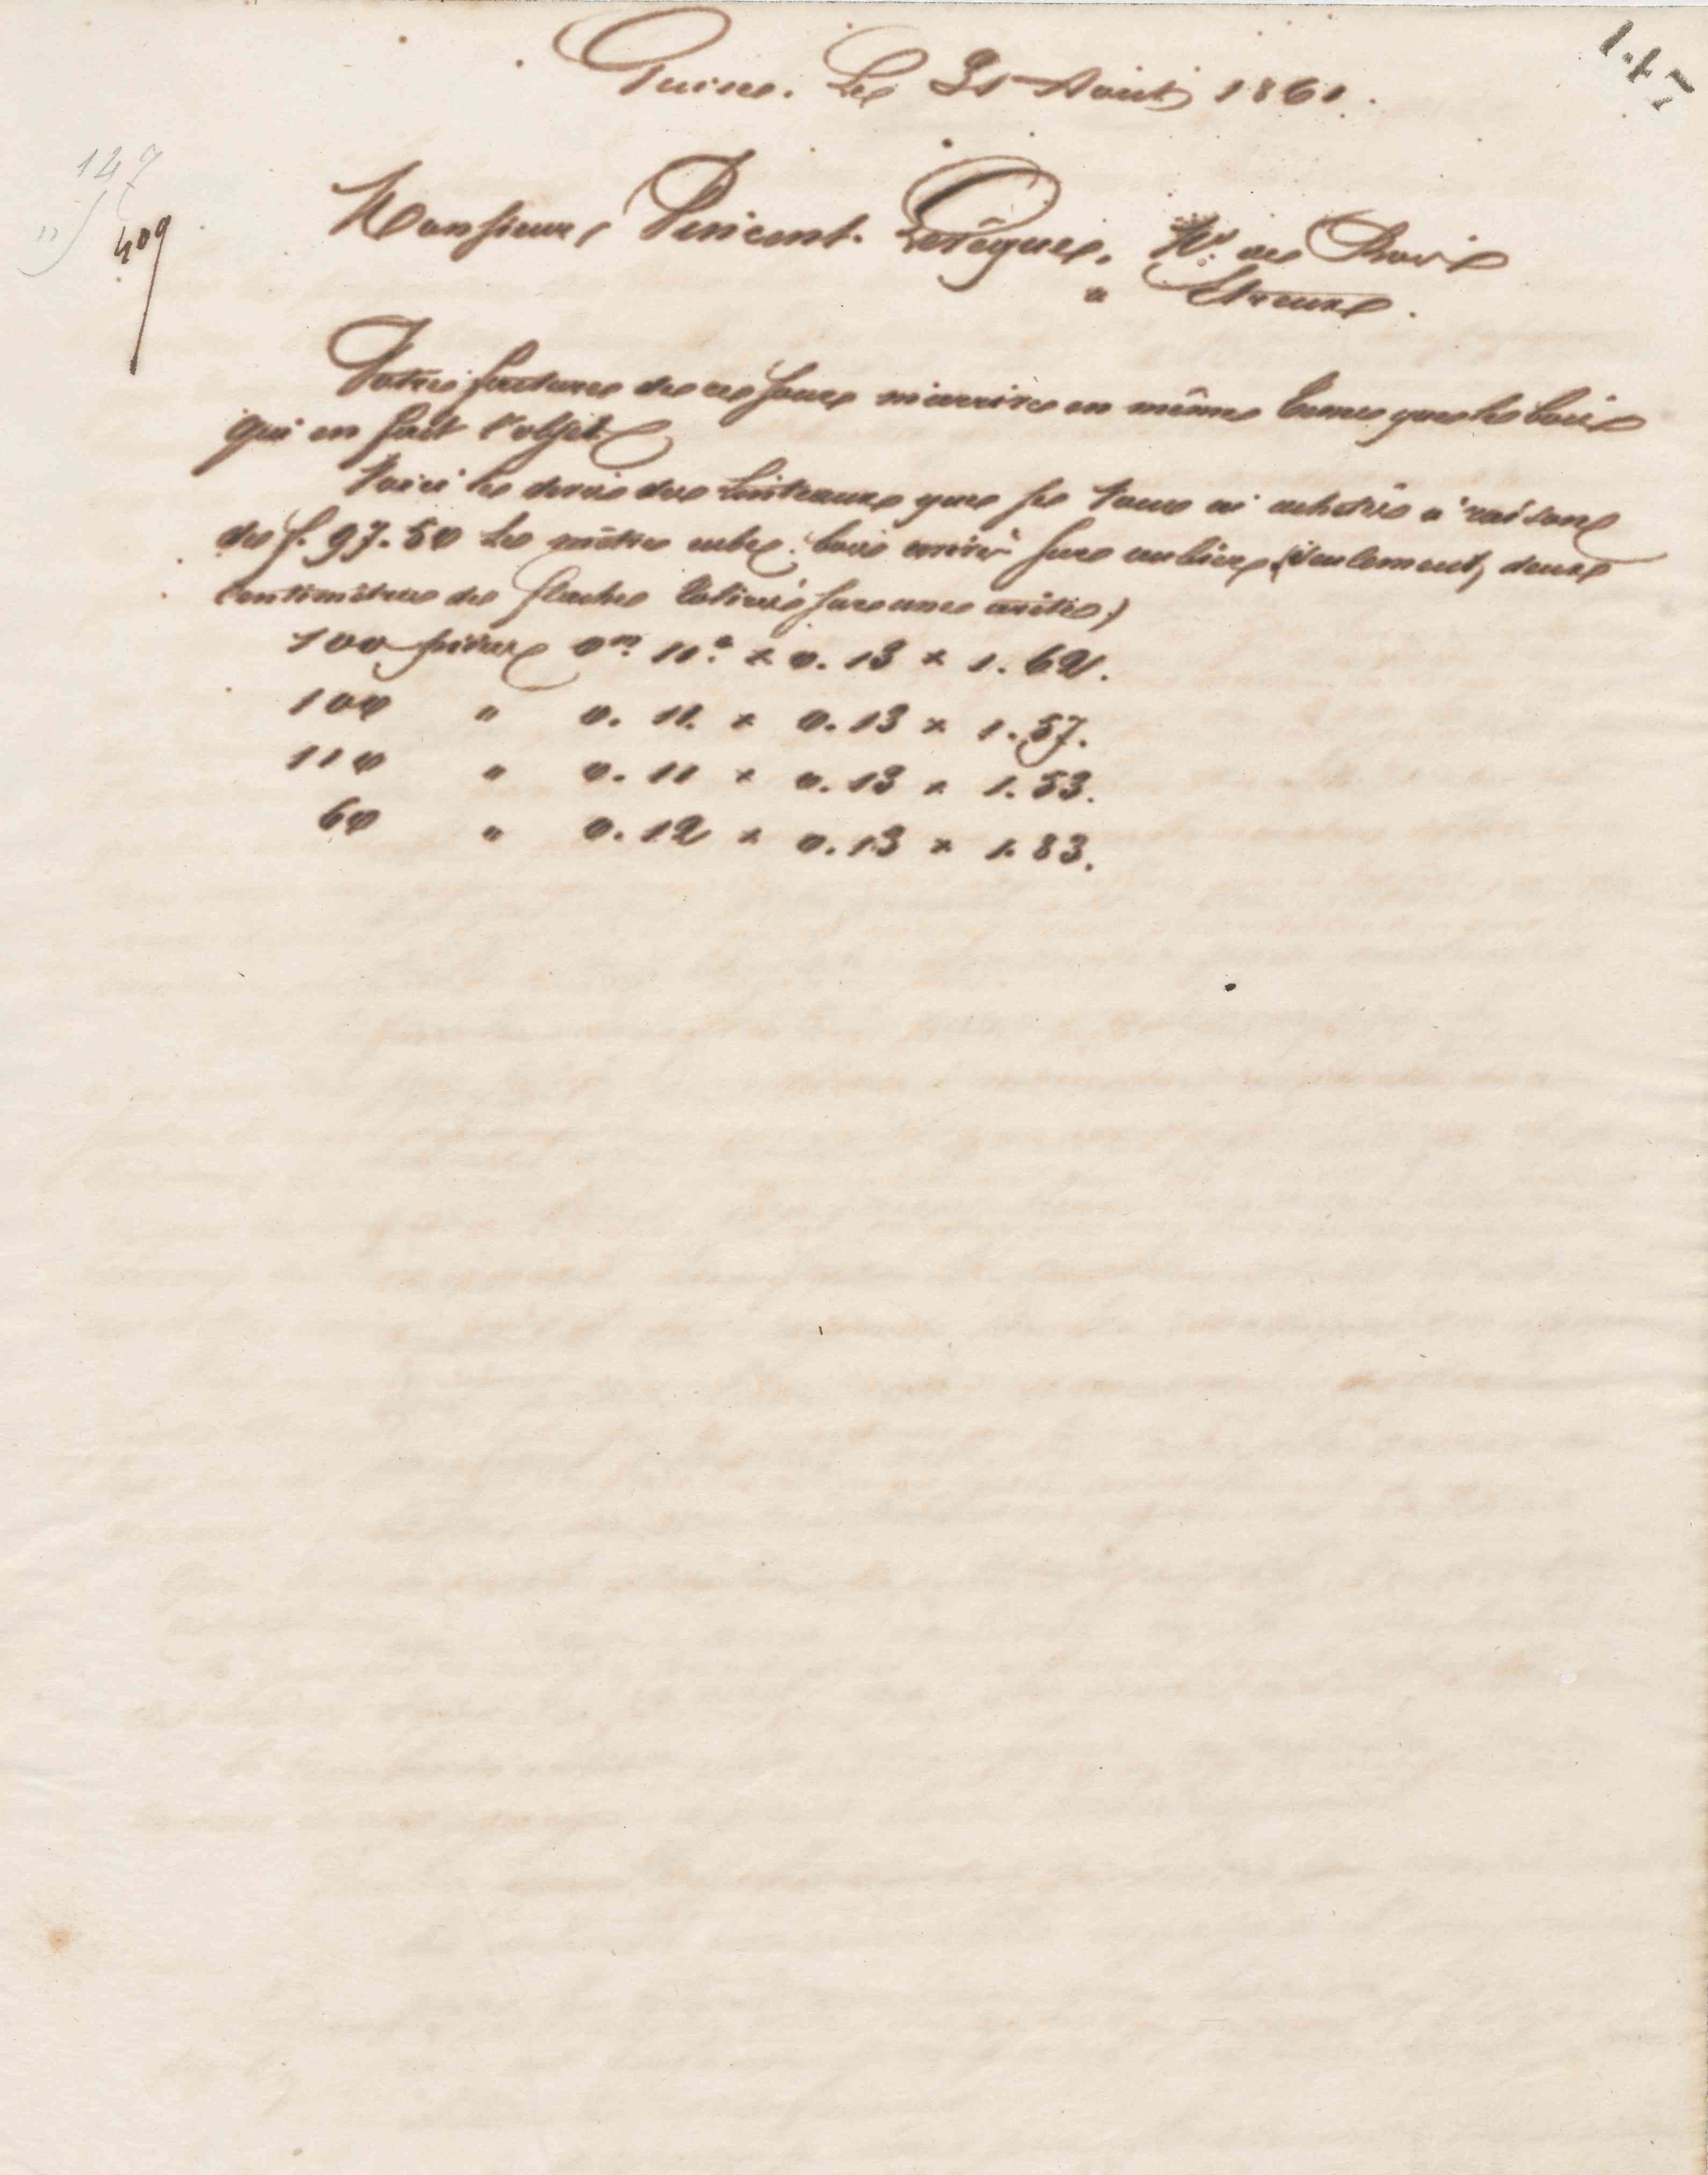 147
409
Guise. Le 31 Août 1861.
Monsieur Vincent Levêque, Md. de Bois
à Etreux.
Votre facture de ce jour m'arrive en même temps que le bois
qui en fait l'objet.
Voici le devis des linteaux que je vous ai achetés à raison
de f. 97.50 le mètre cube, bois avivé sur aubier (seulement, deux
centimètres de flache tolérés sur une arête.)
100 pièces 0m. 11c. x 0.13 x 1.62.
100 " 0.11. x 0.13 x 1.57.
110 " 0.11 x 0.13 x 1.53.
60 " 0.12 x 0.13 x 1.83.